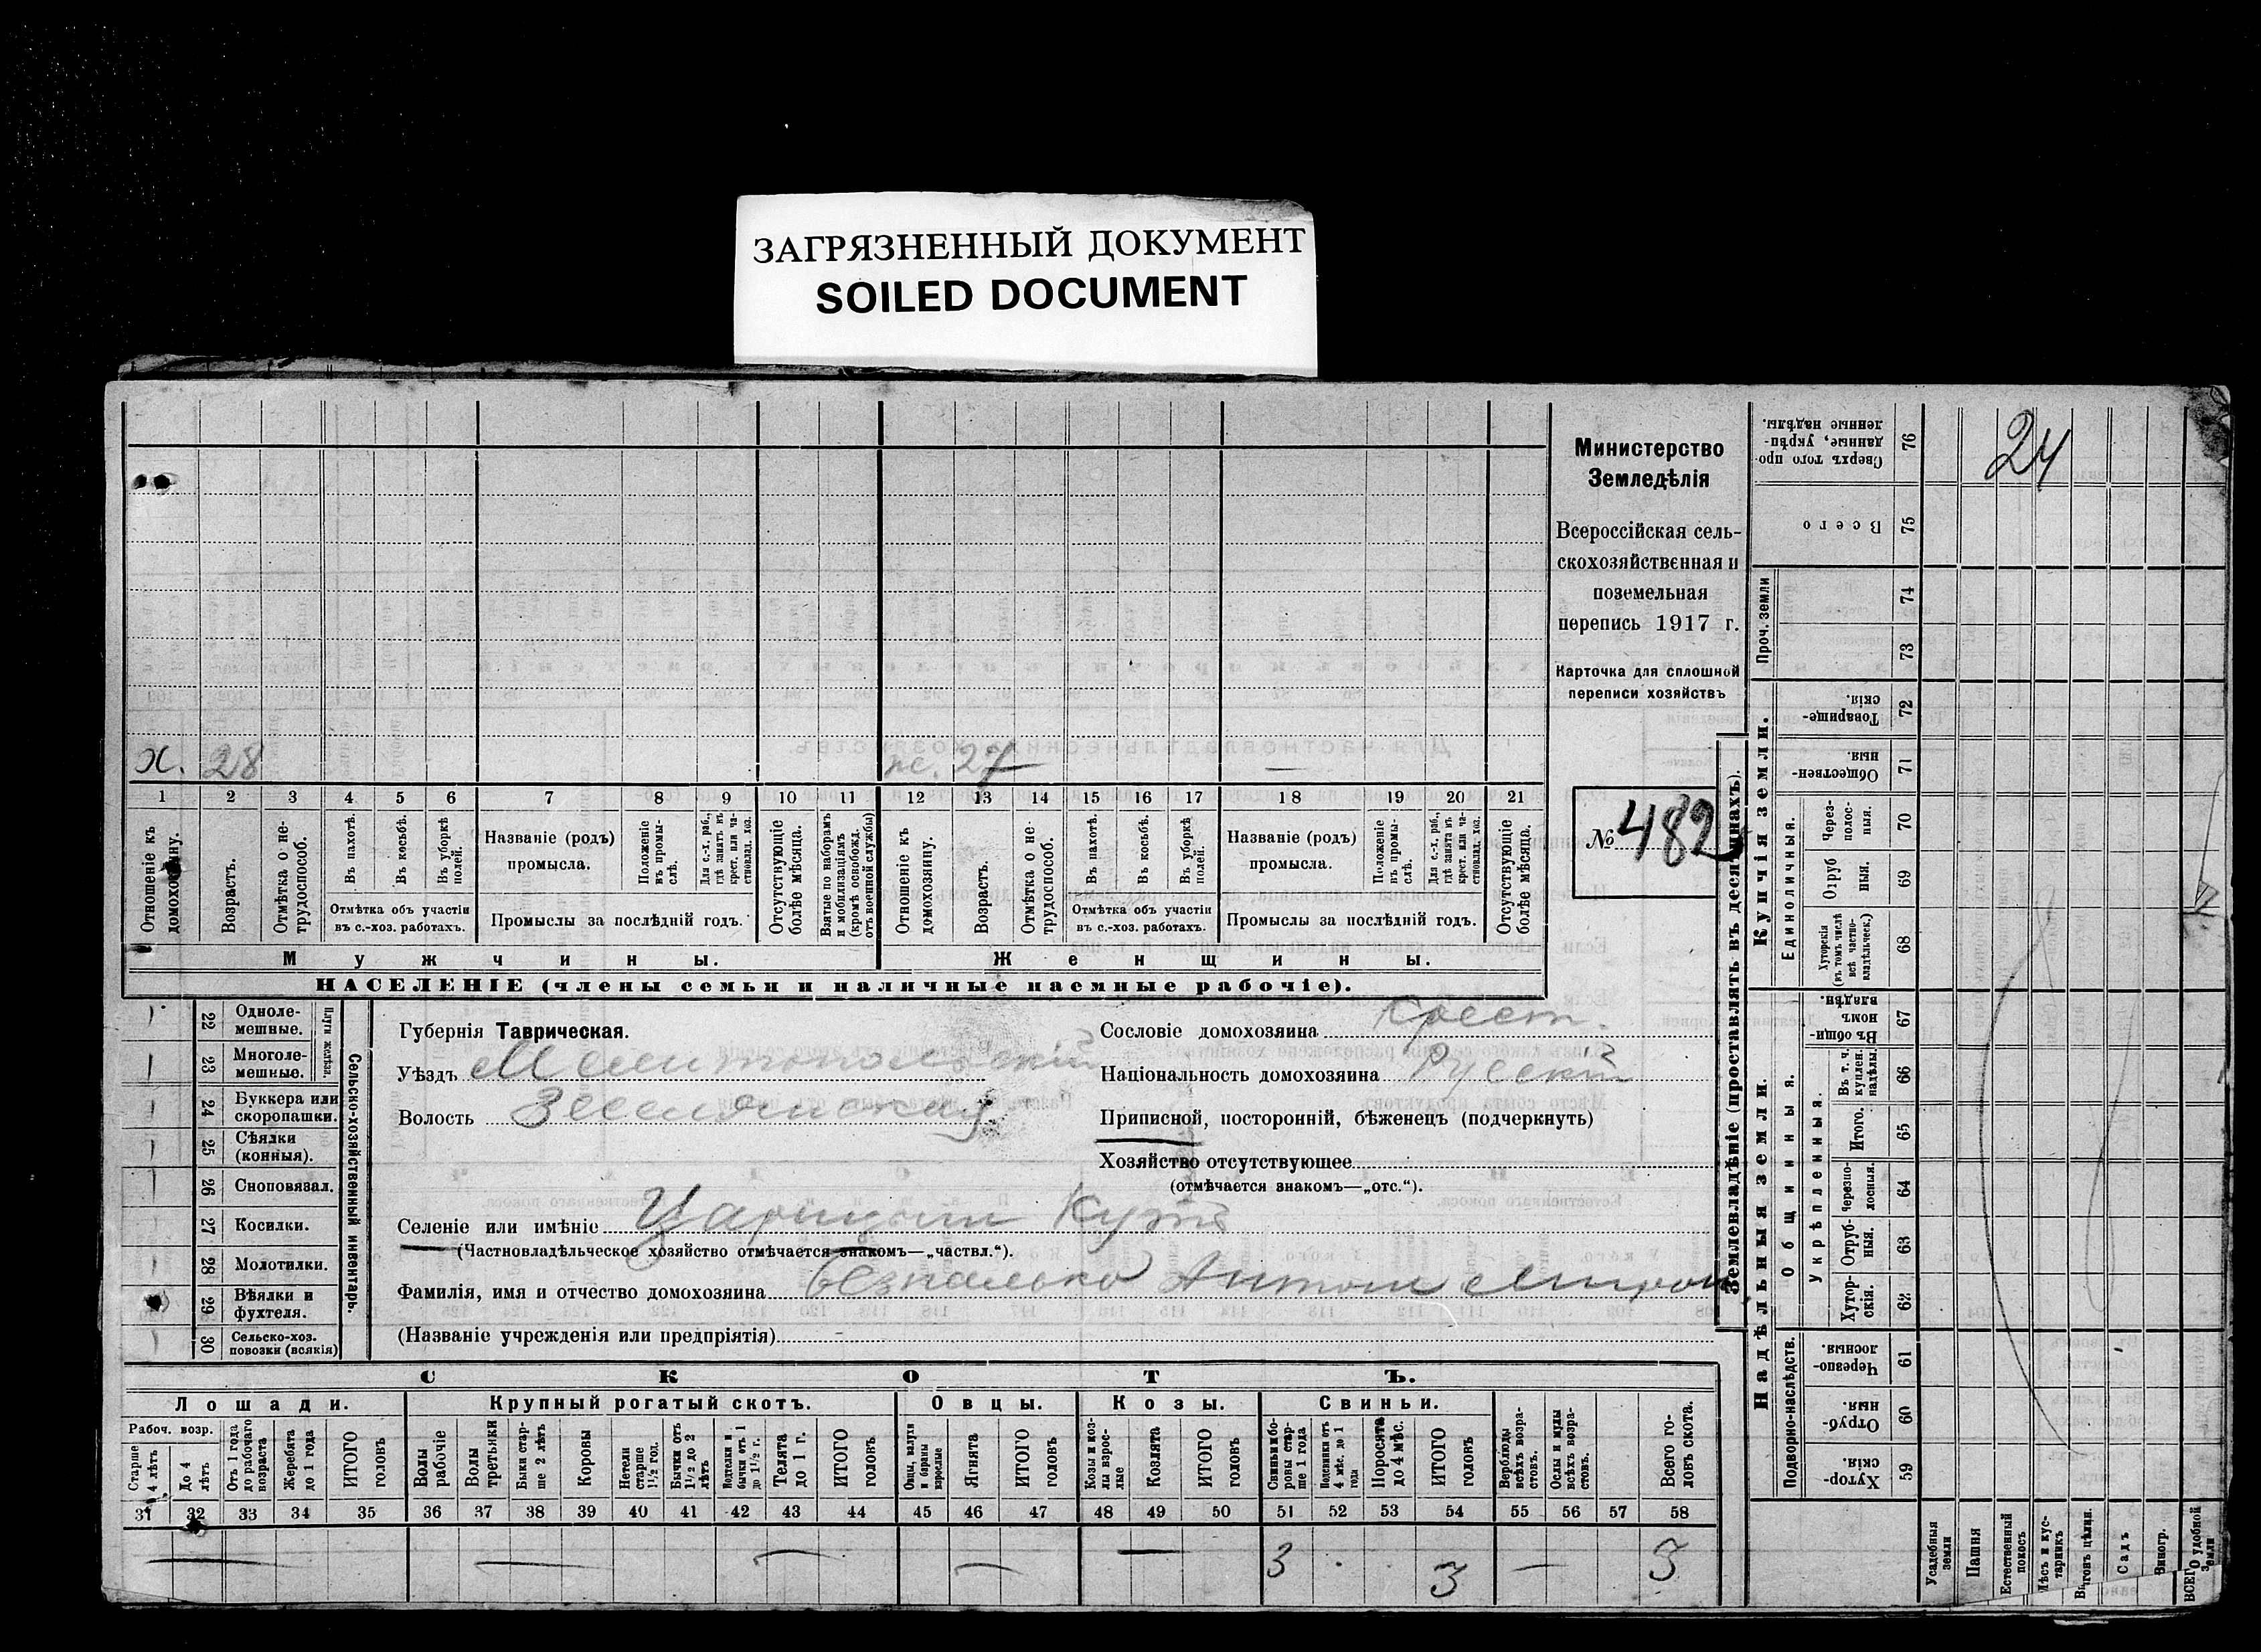 ЗАГРЯЗНЕННЫЙ ДОКУМЕНТ
SOILED DOCUMENT
х. 28
ж. 27
1 2 3 4 5 6 7 8 9 10 11 12 13 14 15 16 17 18 19 20 21
Отношеніе къ домохозяину.
Возрастъ.
Отмѣтка о нетрудоспособ.
Въ пахотѣ.
Въ косьбѣ.
Въ уборкѣ полей.
Отмѣтка объ участіи
въ с.-хоз. работахъ.
Названіе (родъ)
промысла.
Положеніе въ промыслѣ.
Для с.-х. раб., гдѣ занятъ въ крест. или частновлад. хоз.
Промыслы за послѣдній годъ.
Отсутствующіе болѣе мѣсяца.
Взятые по наборамъ и мобилизаціямъ (кромѣ освобожд. отъ военной службы)
Отношеніе къ домохозяину.
Возрастъ.
Отмѣтка о нетрудоспособ.
Въ пахотѣ.
Въ косьбѣ.
Въ уборкѣ полей.
Отмѣтка объ участіи
въ с.-хоз. работахъ.
Названіе (родъ)
промысла.
Положеніе въ промыслѣ.
Для с.-х. раб., гдѣ занятъ въ крест. или частновлад. хоз.
Промыслы за послѣдній годъ.
Отсутствующіе болѣе мѣсяца.
Мужчины.
Женщины.
НАСЕЛЕНІЕ (члены семьи и наличные наемные рабочіе).
Министерство
Земледѣлія
Всероссійская сель-
скохозяйственная и
поземельная
перепись 1917 г.
Карточка для сплошной
переписи хозяйствъ
№ 482
22 Однолемешные.
23 Многолемешные.
Плуги желѣз.
24 Буккера или скоропашки.
25 Сѣялки (конныя).
26 Сноповязал.
27 Косилки.
28 Молотилки.
29 Вѣялки и фухтеля.
30 Сельско-хоз. повозки (всякія)
Сельско-хозяйственный инвентарь.
Губернія Таврическая.
Уѣздъ Мелитопольскій
Волость
Селеніе или имѣніе Царицынъ Кутъ
(Частновладѣльческое хозяйство отмѣчается знакомъ—„частвл.“).
Фамилія, имя и отчество домохозяина Безпалько Антон Мирон
(Названіе учрежденія или предпріятія)
Сословіе домохозяина крест.
Національность домохозяина Русскій
Приписной, посторонній, бѣженецъ (подчеркнуть)
Хозяйство отсутствующее
(отмѣчается знакомъ—„отс.“).
СКОТЪ.
Лошади.
Крупный рогатый скотъ.
Овцы.
Козы.
Свиньи.
Рабоч. возр.
Старше 4 лѣтъ
До 4 лѣтъ
Отъ 1 года до рабочаго возраста
Жеребята до 1 года
ИТОГО головъ
Волы рабочіе
Волы третьяки
Быки старше 2 лѣтъ
Коровы
Нетели старше 1½ год.
Бычки отъ 1½ до 2 лѣтъ
Подтелки и бычки отъ 1 до 1½ г.
Телята до 1 г.
ИТОГО головъ
Овцы, валухи и бараны взрослые
Ягнята
ИТОГО головъ
Козы и козлы взрослые
Козлята
ИТОГО головъ
Свиньи боровы старше 1 года
Подсвинки отъ 4 мѣс. до 1 года
Поросята до 4 мѣс.
ИТОГО головъ
Верблюды всѣхъ возрастовъ.
Ослы и мулы всѣхъ возрастовъ.
Всего головъ скота.
31 32 33 34 35 36 37 38 39 40 41 42 43 44 45 46 47 48 49 50 51 52 53 54 55 56 57 58
3 3 3
Землевладѣніе (проставлять въ десятинахъ).
Надѣльныя земли.
Купчія земли.
Проч. земли
Подворно-наслѣдств.
Общинныя.
Укрѣпленныя.
Единоличныя.
76 Сверхъ того проданные, укрѣпленные надѣлы.
75 Всего
74
73
72 Товарищескія.
71 Общественныя
70 Черезполосныя.
69 Отрубныя.
68 Хуторскія (въ томъ числѣ всѣ частновладѣльческ.)
67 Въ общинномъ владѣн.
66 Въ т. ч. куплен. надѣлы.
65 Итого.
64 Черезполосныя.
63 Отрубныя.
62 Хуторскія.
61 Черезполосныя.
60 Отрубныя.
59 Хуторскія.
Усадебныя земли
Пашня
Естественный покосъ
Лѣсъ и кустарникъ
Выгонъ цѣлин.
Садъ
Виногр.
ВСЕГО удобной земли
24